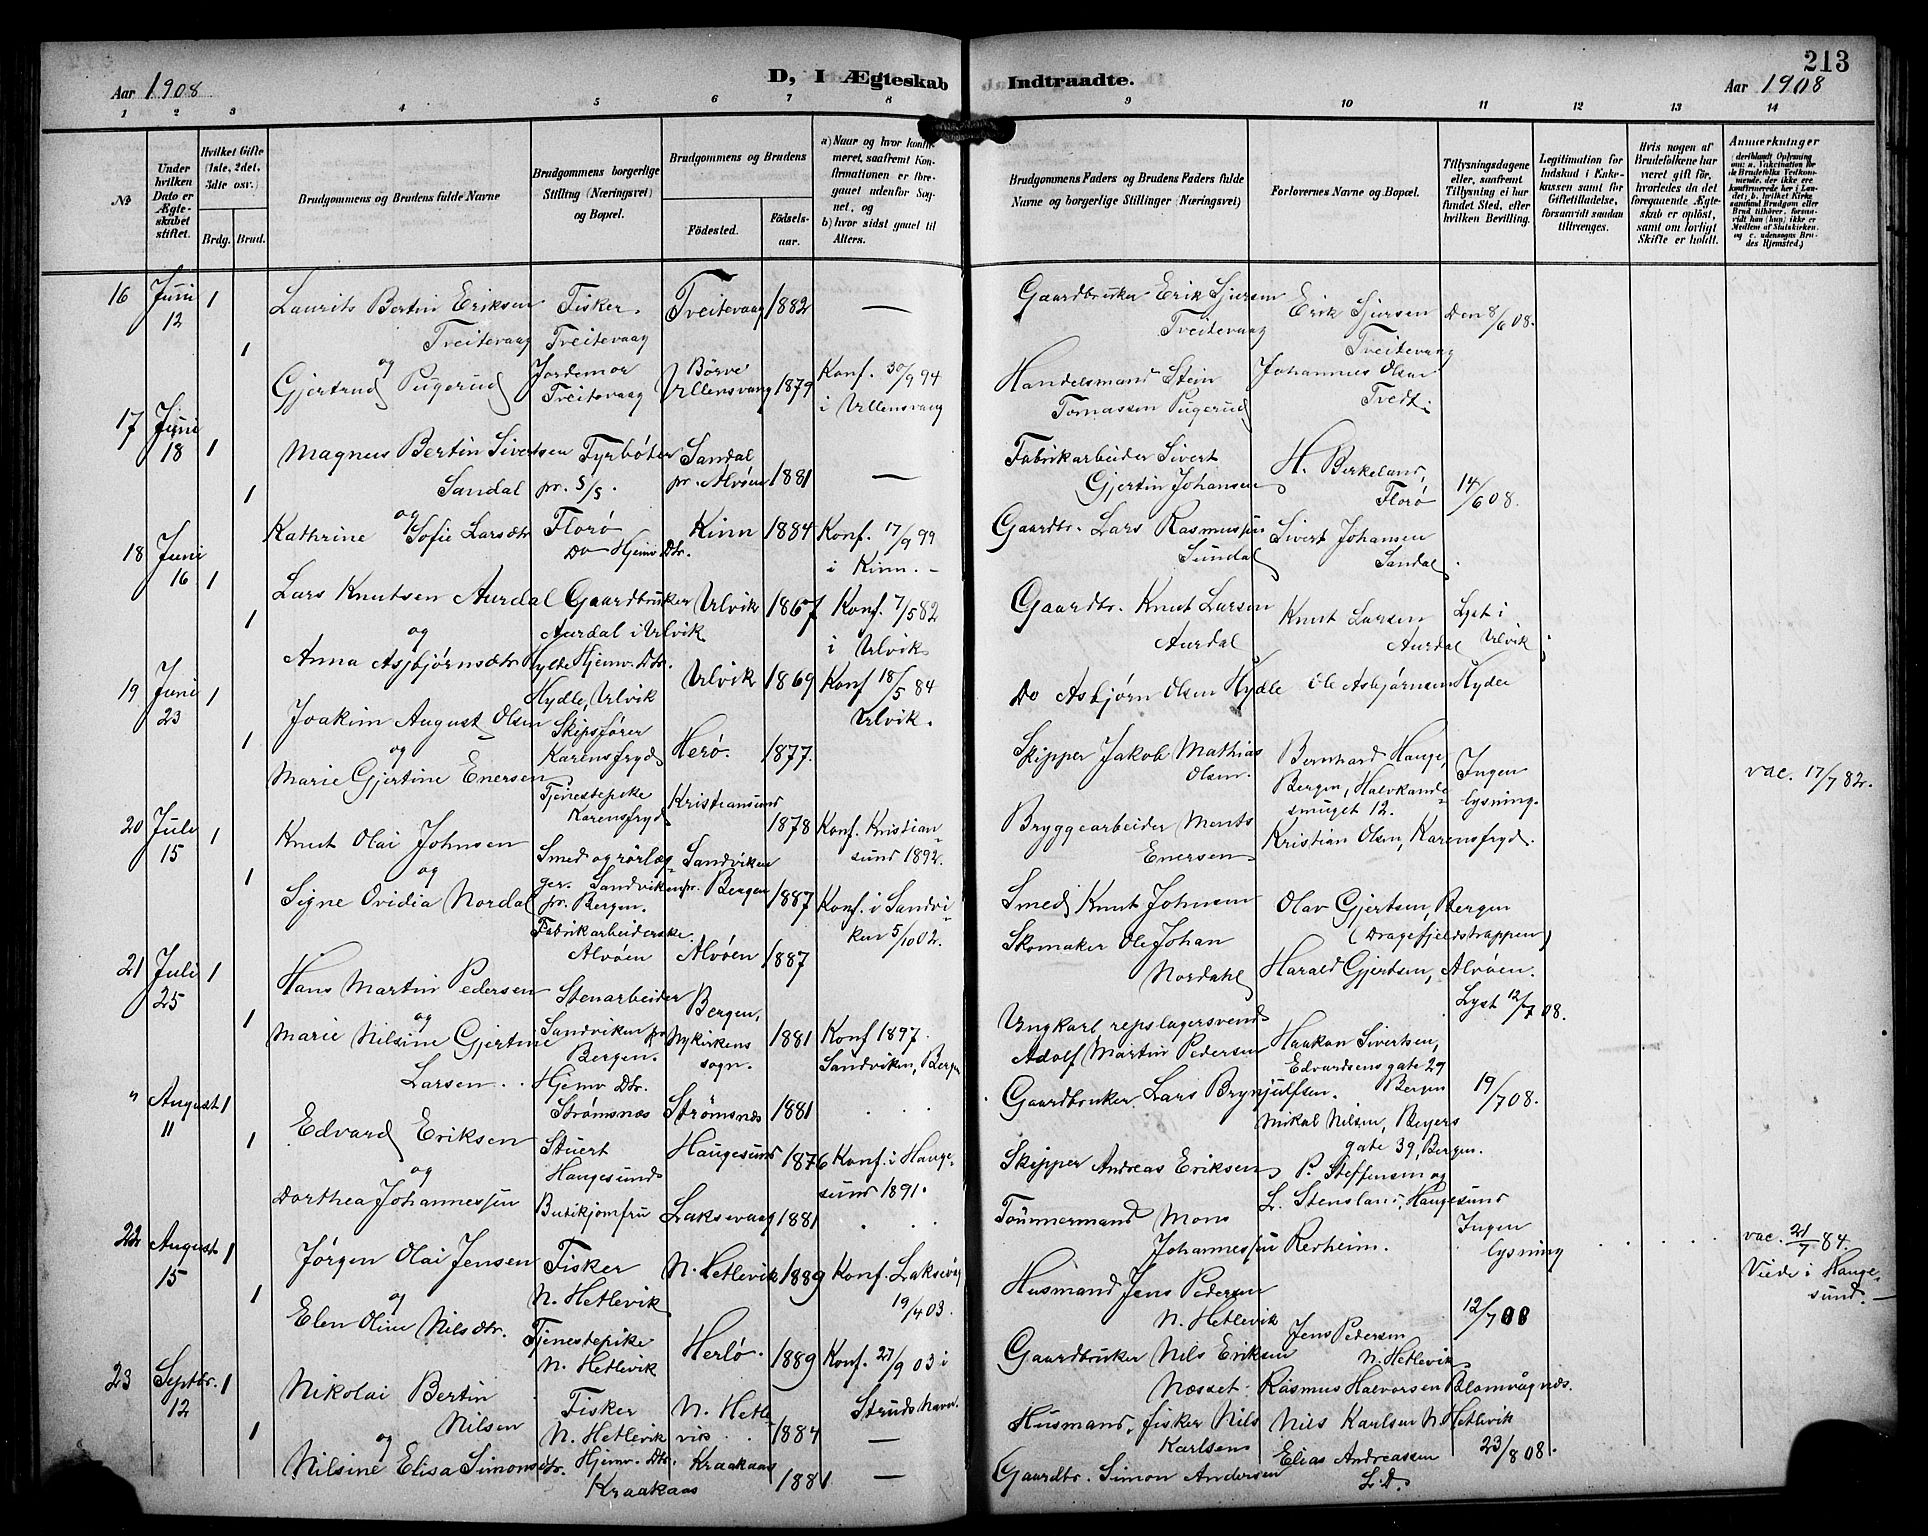 213
Aar 1908
D, I Ægteskab Indtraadte.
Aar 1908
1 2 3 4 5 6 7 8 9 10 11 12 13 14
No
Under hvilken Dato er Ægteskabet stiftet.
Hvilket Gifte (1ste, 2det, 3die osv.)
Brdg. Brud.
Brudgommens og Brudens fulde Navne
Brudgommens borgerlige Stilling (Næringsvei) og Bopæl.
Brudgommens og Brudens
Fødested. Fødselsaar.
a) Naar og hvor konfirmeret, saafremt Konfirmationen er foregaaet udenfor Sognet, og
b) hvor sidst gaaet til Alters.
Brudgommens Faders og Brudens Faders fulde Navne og borgerlige Stillinger (Næringsvei)
Forlovernes Navne og Bopæl.
Tillysningsdagene eller, saafremt Tillysning ei har fundet Sted, efter hvilken Bevilling.
Legitimation for Indskud i Enkekassen samt for Giftetilladelse, forsaavidt saadan tiltrænges.
Hvis nogen af Brudefolkene har været gift før, hvorledes da det foregaaende Ægteskab er opløst, samt om lovligt Skifte er holdt.
Anmærkninger
(deriblandt Oplysning om: a. Vaccination for de Brudefolks Vedkommende, der ikke ere konfirmerede her i Landet; b. hvilket Kirkesamfund Brudgom eller Brud tilhører, forsaavidt han (hun) ikke er Medlem af Statskirken, og c. udensogns Brudes Hjemsted.)
16 Juni 12 1 1
Laurits Bertin Eriksen Treitevaag
og
Gjertrud Pugerud
Fisker. Treitevaag
Jordemor Treitevaag
Treitevaag 1882 —
Børve Ullensvang 1879 Konf. 30/9 94 i Ullensvang
Gaardbruker Erik Sjursen Treitevaag
Handelsmand Stein Tomassen Pugerud
Erik Sjursen Treitevaag
Johannes Olsen Tvedt
Den 8/6 08.
17 Juni 18 1 1
Magnus Bertin Sivertsen Sandal
og
Kathrine Sofie Larsdtr
Fyrbøter pr. S/S. Florø
Do Hjemv. Dtr.
Sandal pr. Alvøen 1881 —
Kinn 1884 Konf. 17/9 99 i Kinn. -
Fabrikarbeider Sivert Gjertin Johansen
Gaardbr. Lars Rasmussen Sundal
H. Birkeland, Florø
Sivert Johansen Sandal.
14/6 08.
18 Juni 16 1 1
Lars Knutsen Aurdal
og
Anna Asbjørnsdtr Hylde
Gaardbruker Aurdal i Ulvik
Hjemv. Dtr. Hydle, Ulvik
Ulvik 1867 Konf. 7/5 82 i Ulvik
Ulvik 1869 Konf 18/5 84 Ulvik.
Gaardbr. Knut Larsen Aurdal
Do Asbjørn Olsen Hydle
Knut Larsen Aurdal
Ole Asbjørnsen Hydle
Lyst i Ulvik
19 Juni 23 1 1
Joakim August Olsen
og
Marie Gjertine Enersen
Skipsfører Karensfryd
Tjenestepike Karensfryd
Herø. 1877.
Kristiansund 1878 Konf. Kristiansund 1892.
Skipper Jakob Mathias Olsen.
Bryggearbeider Ments Enersen
Bernhard Hauge, Bergen, Halvkandesmuget 12.
Kristian Olsen, Karensfryd.
Ingen lysning.
vac. 17/7 82.
20 Juli 15 1 1
Knut Olai Johnsen
og
Signe Ovidia Nordal
Smed og rørlægger. Sandviken pr. Bergen.
Fabrikarbeiderske Alvøen
Sandviken pr. Bergen 1887 Konf. i Sandviken 5/10 02.
Alvøen 1887
Smed Knut Johnsen
Skomaker Ole Johan Nordahl
Olav Gjertsen, Bergen (Dragefjeldstrappen)
Harald Gjertsen, Alvøen.
Lyst 12/7 08.
21 Juli 25 1 1
Hans Martin Pedersen
og
Marie Nilsine Gjertine Larsen.
Stenarbeider Sandviken pr Bergen.
Hjemv Dtr. Strømsnæs
Bergen, Nykirkens sogn. 1881 Konf 1897. Sandviken, Bergen
Strømsnæs 1881
Ungkarl repslagersvend Adolf Martin Pedersen
Gaardbruker Lars Brynjulfsen.
Haakon Sivertsen, Edvardsensgate 29 Bergen
Mikal Nilsen, Beyers gate 39, Bergen.
19/7 08.
" August 11 1 1
Edvard Eriksen
og
Dorthea Johannessen
Stuert Haugesund
Butikjomfru
Haugesund 1876 Konf. i Haugesund 1891.
Laksevaag 1881
Skipper Andreas Eriksen
Tømmermand Mons Johannessen Rerheim.
P. Steffensen og L. Stensland, Haugesund
Ingen lysning
vac. 21/7 84. Viede i Haugesund. —
22 August 15 1 1
Jørgen Olai Jensen
og
Elen Oline Nilsdtr.
Fisker N. Hetlevik
Tjenestepike N. Hetlevik
N. Hetlevik 1889 Konf. Laksevåg 19/4 03.
Herlø. 1889 Konf. 27/9 03 i Strudshavn.
Husmand Jens Pedersen N. Hetlevik
Gaardbruker Nils Eriksen Næsset.
Jens Pedersen N. Hetlevik
Rasmus Halvorsen Blomvåg nds.
12/7 08
23 Septbr. 12 1 1
Nikolai Bertin Nilsen
og
Nilsine Elisa Simonsdtr.
Fisker N. Hetlevik
Hjemv. Dtr. Kraakaas
N. Hetlevik 1884 —
Kraakaas 1881 —
Husmand, fisker Nils Karlsen
Gaardbr. Simon Andersen
Nils Karlsen N Hetlevik
Elias Andreassen L. D.
23/8 08.